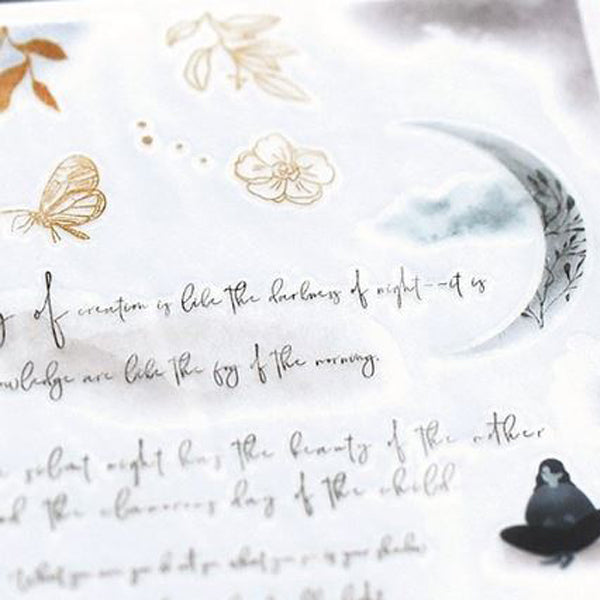 of creation is like the darkness of night--it is
owledge are like the fog of the morning.
silent night has the beauty of the mother
nd the clamorous day of the child
What you are you do not see what you see is your shadow